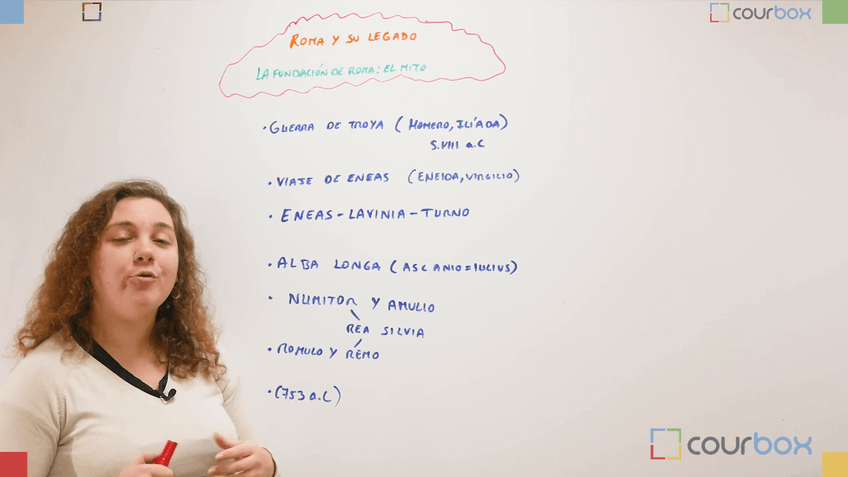 courbox
ROMA Y SU LEGADO
LA FUNDACIÓN DE ROMA: EL MITO
· GUERRA DE TROYA (HOMERO, ILÍADA)
S.VIII a.C
· VIAJE DE ENEAS (ENEIDA, VIRGILIO)
· ENEAS - LAVINIA - TURNO
· ALBA LONGA (ASCANIO = IULIUS)
· NUMITOR Y AMULIO
REA SILVIA
· ROMULO Y REMO
· (753 a.C)
courbox